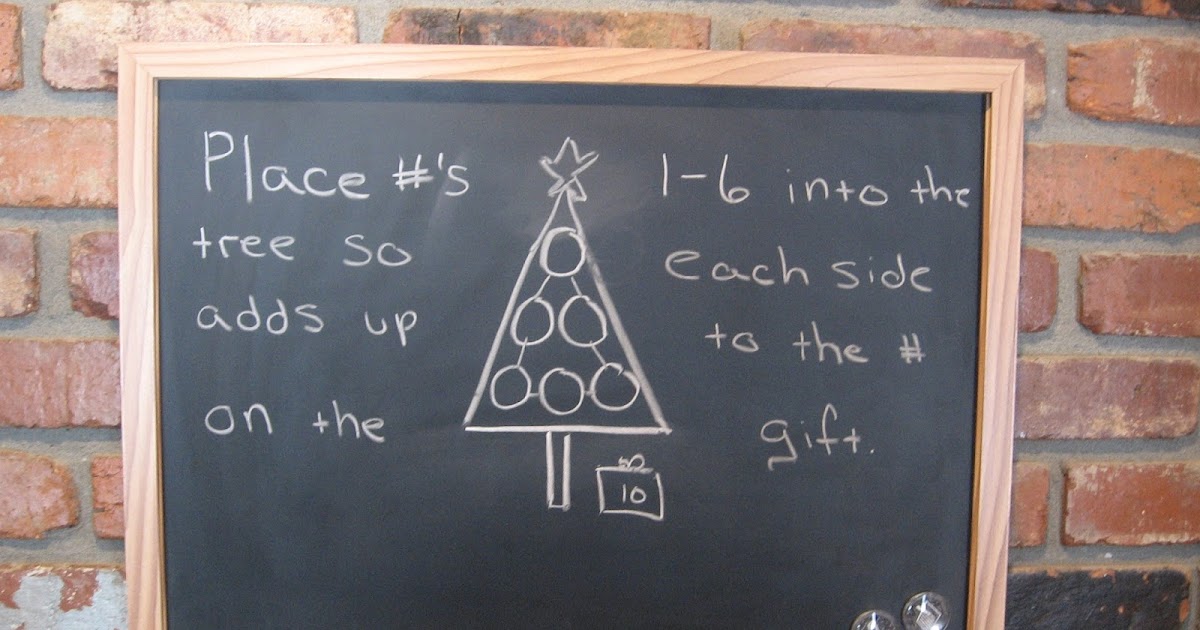 Place #'s 1-6 into the
tree so each side
adds up to the #
on the gift.
10